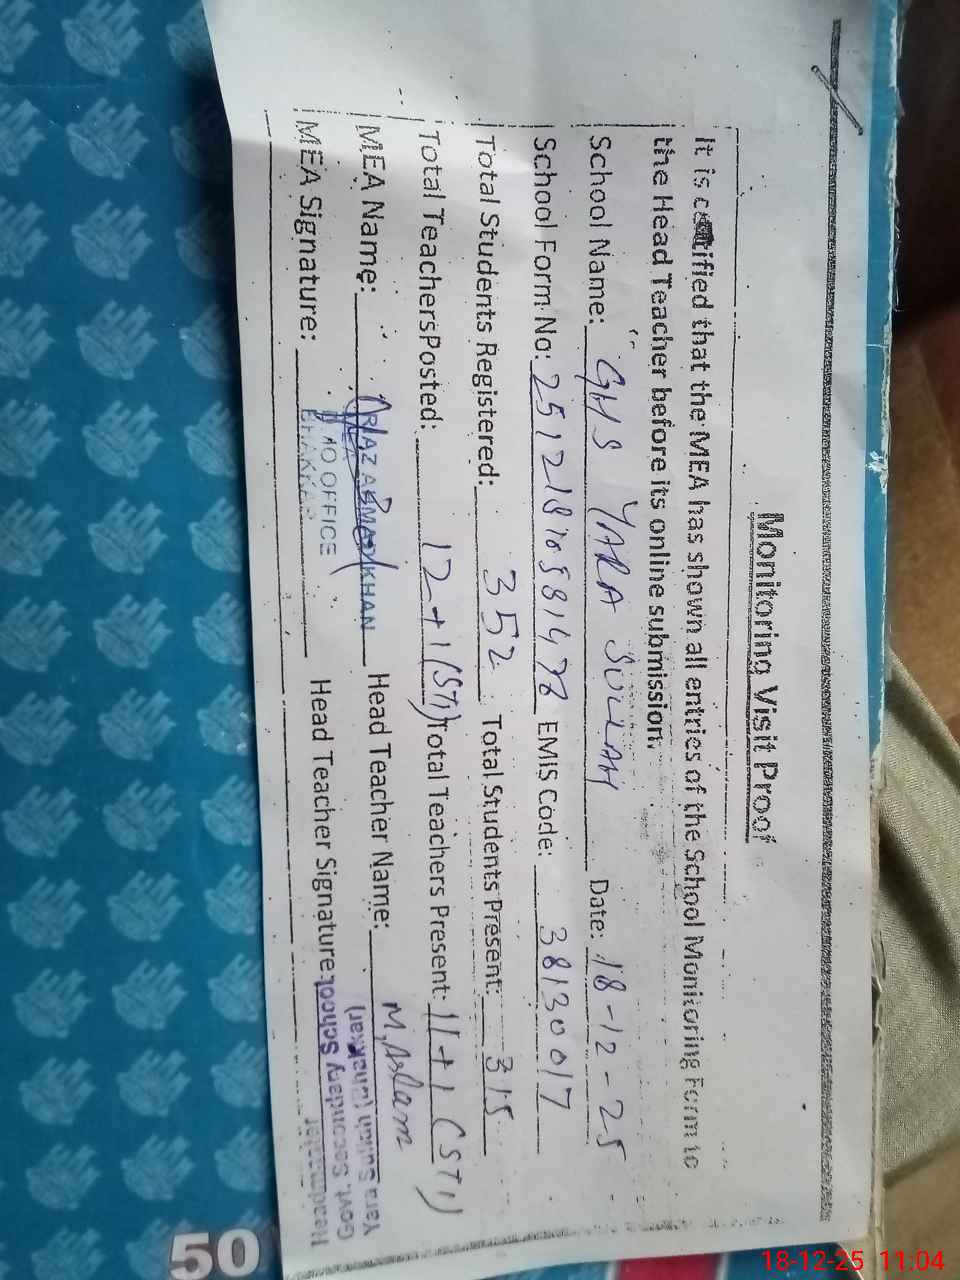 Monitoring Visit Proof
It is certified that the MEA has shown all entries of the School Monitoring Form to
the Head Teacher before its online submission.
School Name: GHS YARA SULLAH Date: 18-12-25
School Form No: EMIS Code: 38130017
Total Students Registered: 352 Total Students Present: 315
Total Teachers Posted: 12+1(STI) Total Teachers Present: 11+1 (STI)
MEA Name: RIAZ AHMAD KHAN Head Teacher Name: M. Aslam
MEA Signature: OFFICE BHAKKAR Head Teacher Signature:
Headmaster
Govt. Secondary School
Yara Sullah (Bhakkar)
50
18-12-25 11:04